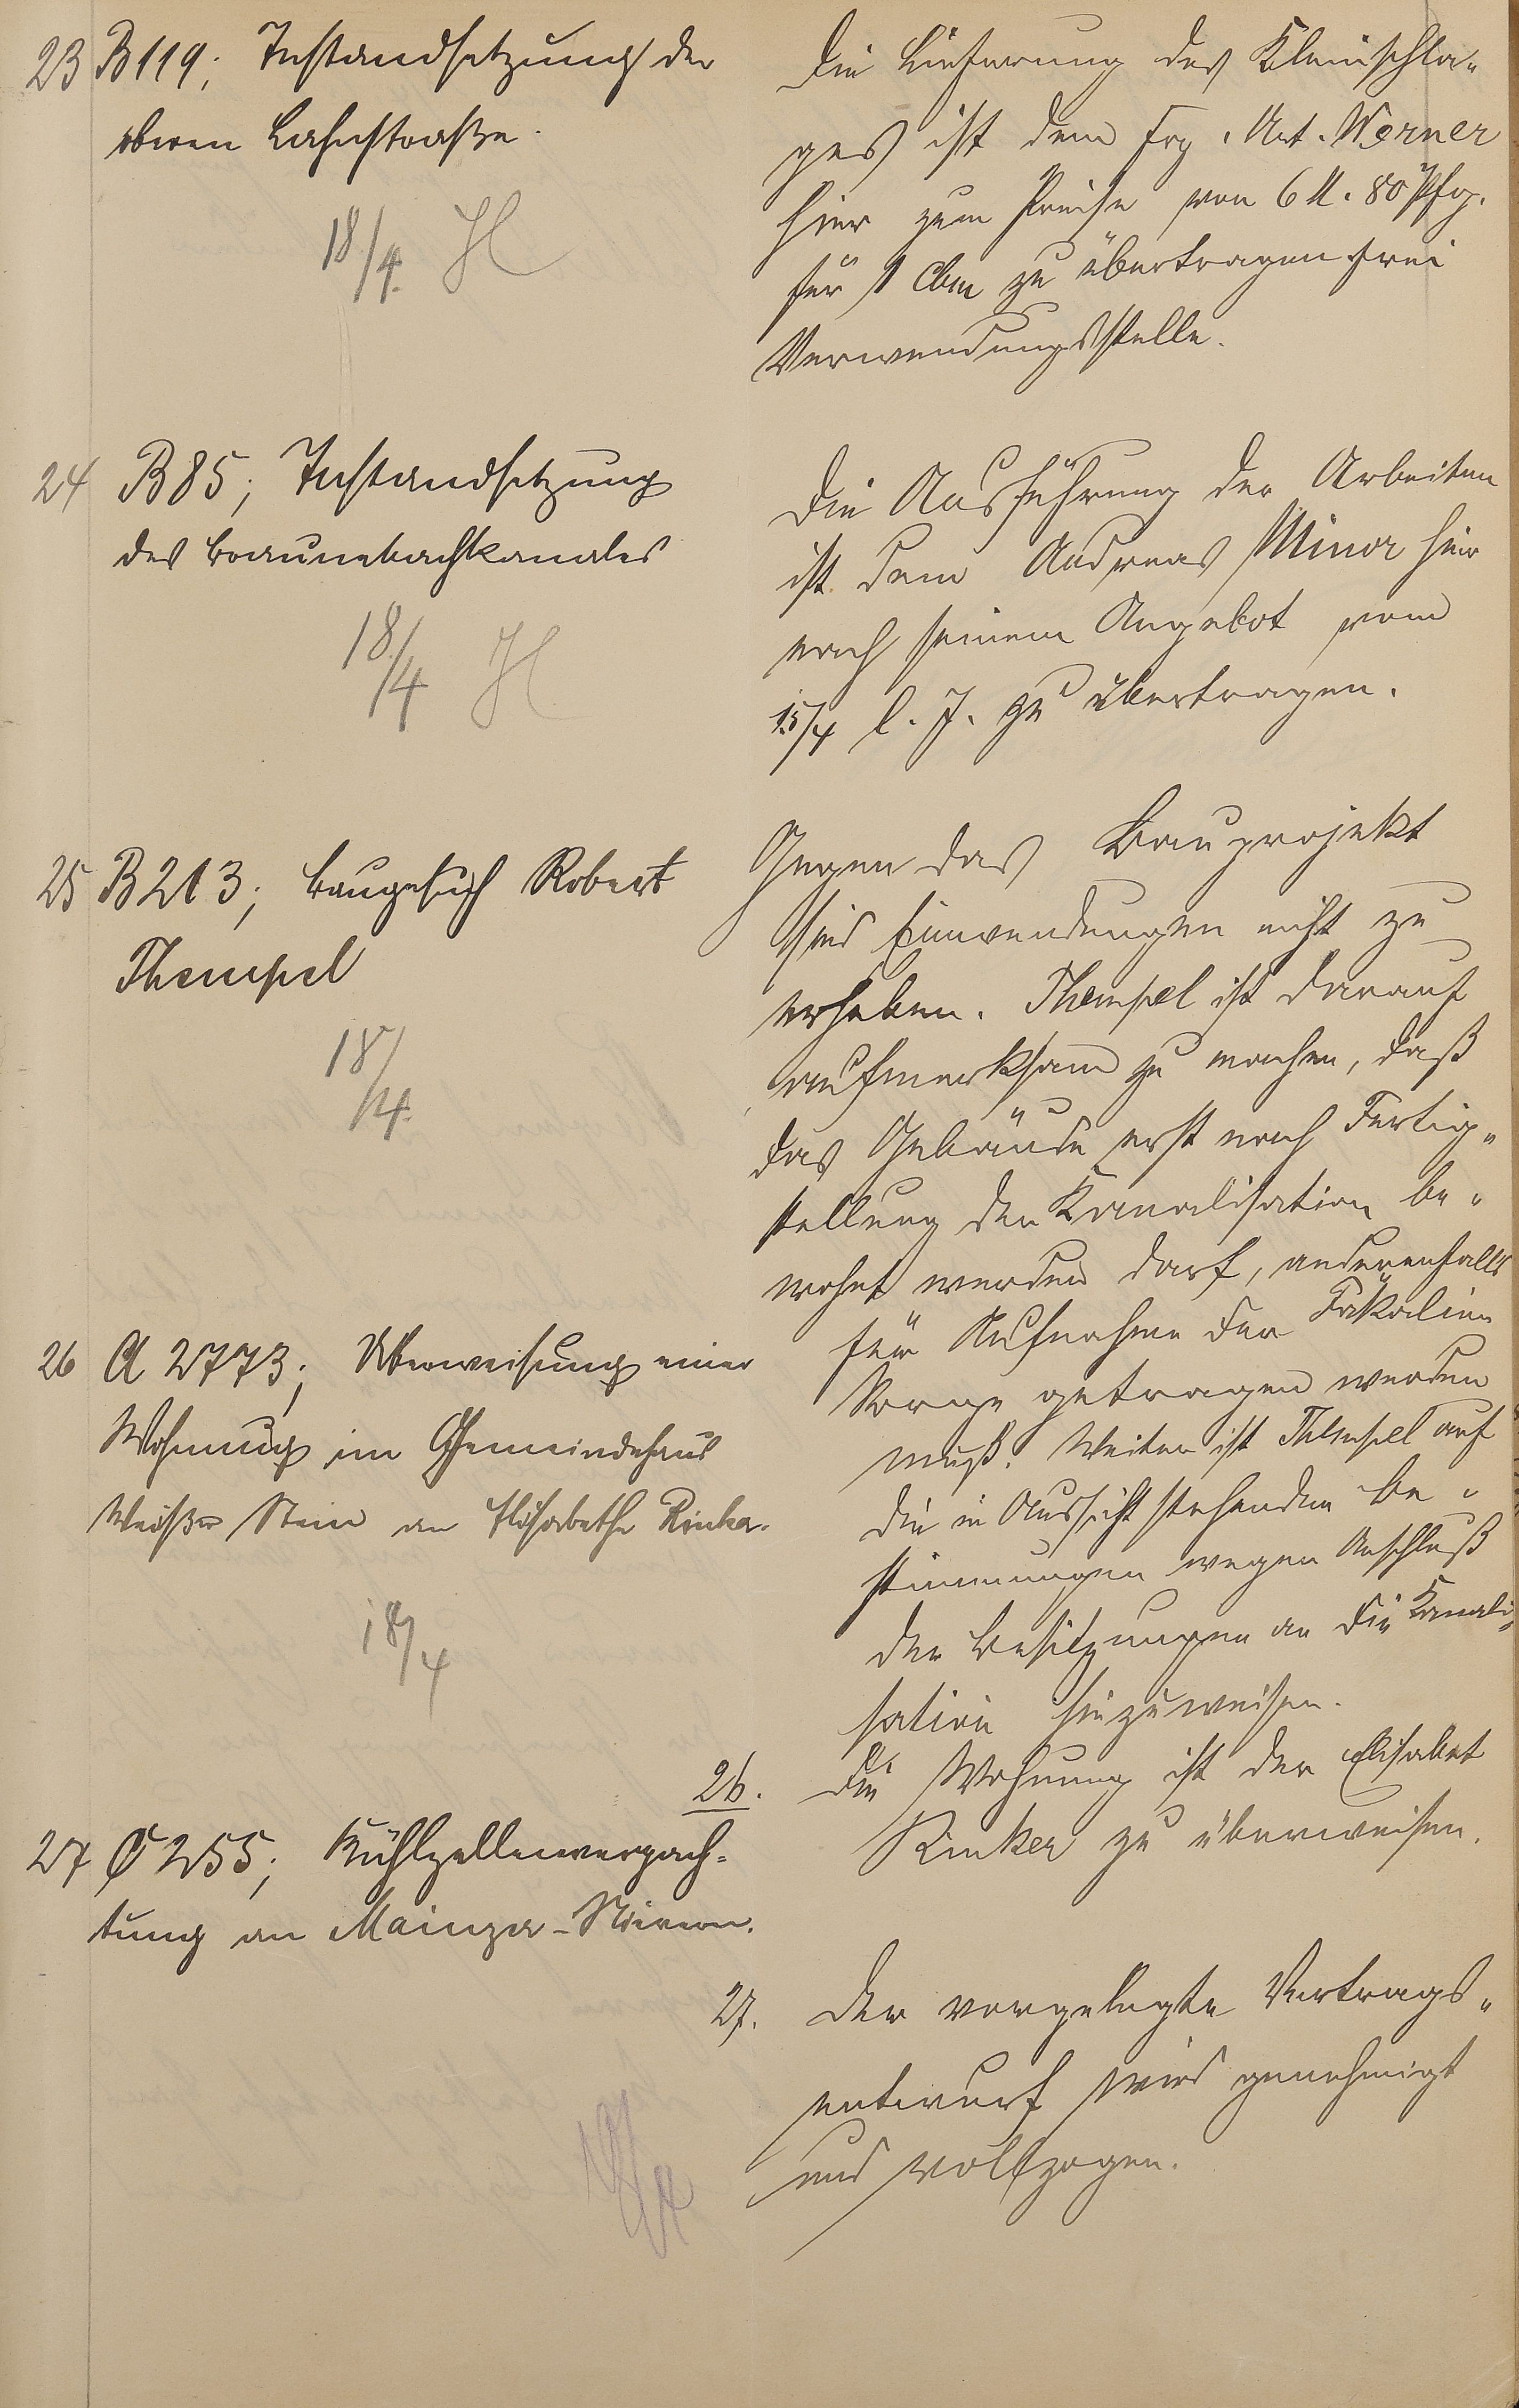 23 B 119; Instandsetzung der
oberen Lahnstraße.
18/4. H
Die Lieferung des Kleinschla-
ges ist dem Frz. Ant. Werner
hier zum Preise von 6 M. 80 Pfg.
für 1 cbm zu übertragen frei
Verwendungsstelle.
24 B 85; Instandsetzung
des Braunebachkanales
18/4 H
Die Ausführung der Arbeiten
ist dem Andreas Minor hier
nach seinem Angebot vom
15/4 l. J. zu übertragen.
25 B 213; Baugesuch Robert
Thempel
18/4.
Gegen das Bauprojekt
sind Einwendungen nicht zu
erheben. Thempel ist darauf
aufmerksam zu machen, daß
das Gebäude erst nach Fertig-
stellung der Kanalisation be-
wohnt werden darf, anderenfalls
für Aufnahme der Fäkalien
Sorge getragen werden
muß. Weiter ist Thempel auf
die in Aussicht stehenden Be-
stimmungen wegen Anschluß
der Besitzungen an die Kanali-
sation hinzuweisen.
26 A 2773; Überweisung einer
Wohnung im Gemeindehaus
Weißer Stein an Elisabethe Rinker.
18/4
26. Die Wohnung ist der Elisabet
Rinker zu überweisen.
27 C 255; Kühlzellenverpach-
tung an Mainzer-Nievern.
27. Der vorgelegte Vertrags-
entwurf wird genehmigt
und vollzogen.